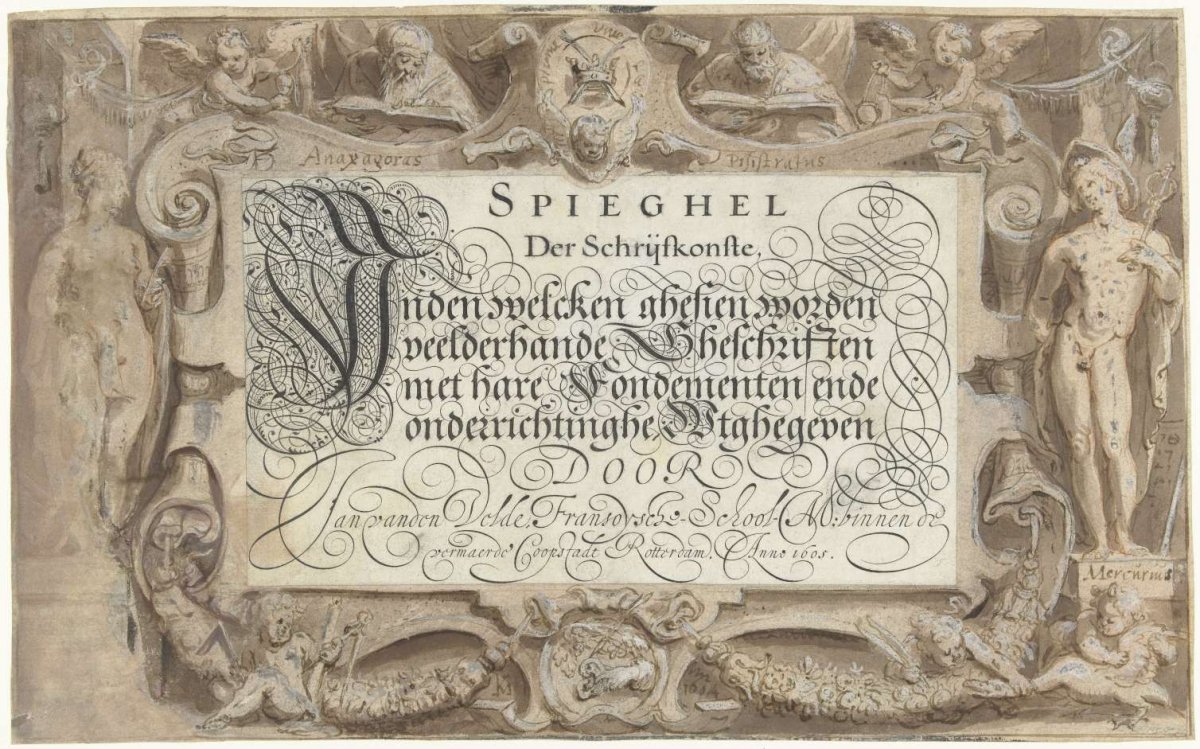 Anaxagoras
Pisistratus
SPIEGHEL
Der Schrijfkonste,
Inden welcken ghesien worden
veelderhande Gheschriften
met hare Fondementen ende
onderrichtinghe. Wtghegeven
DOOR
Jan vanden Velde, Fransoysche-School-M: binnen de
vermaerde Coopstadt Rotterdam. Anno 1605.
Mercurius
1604